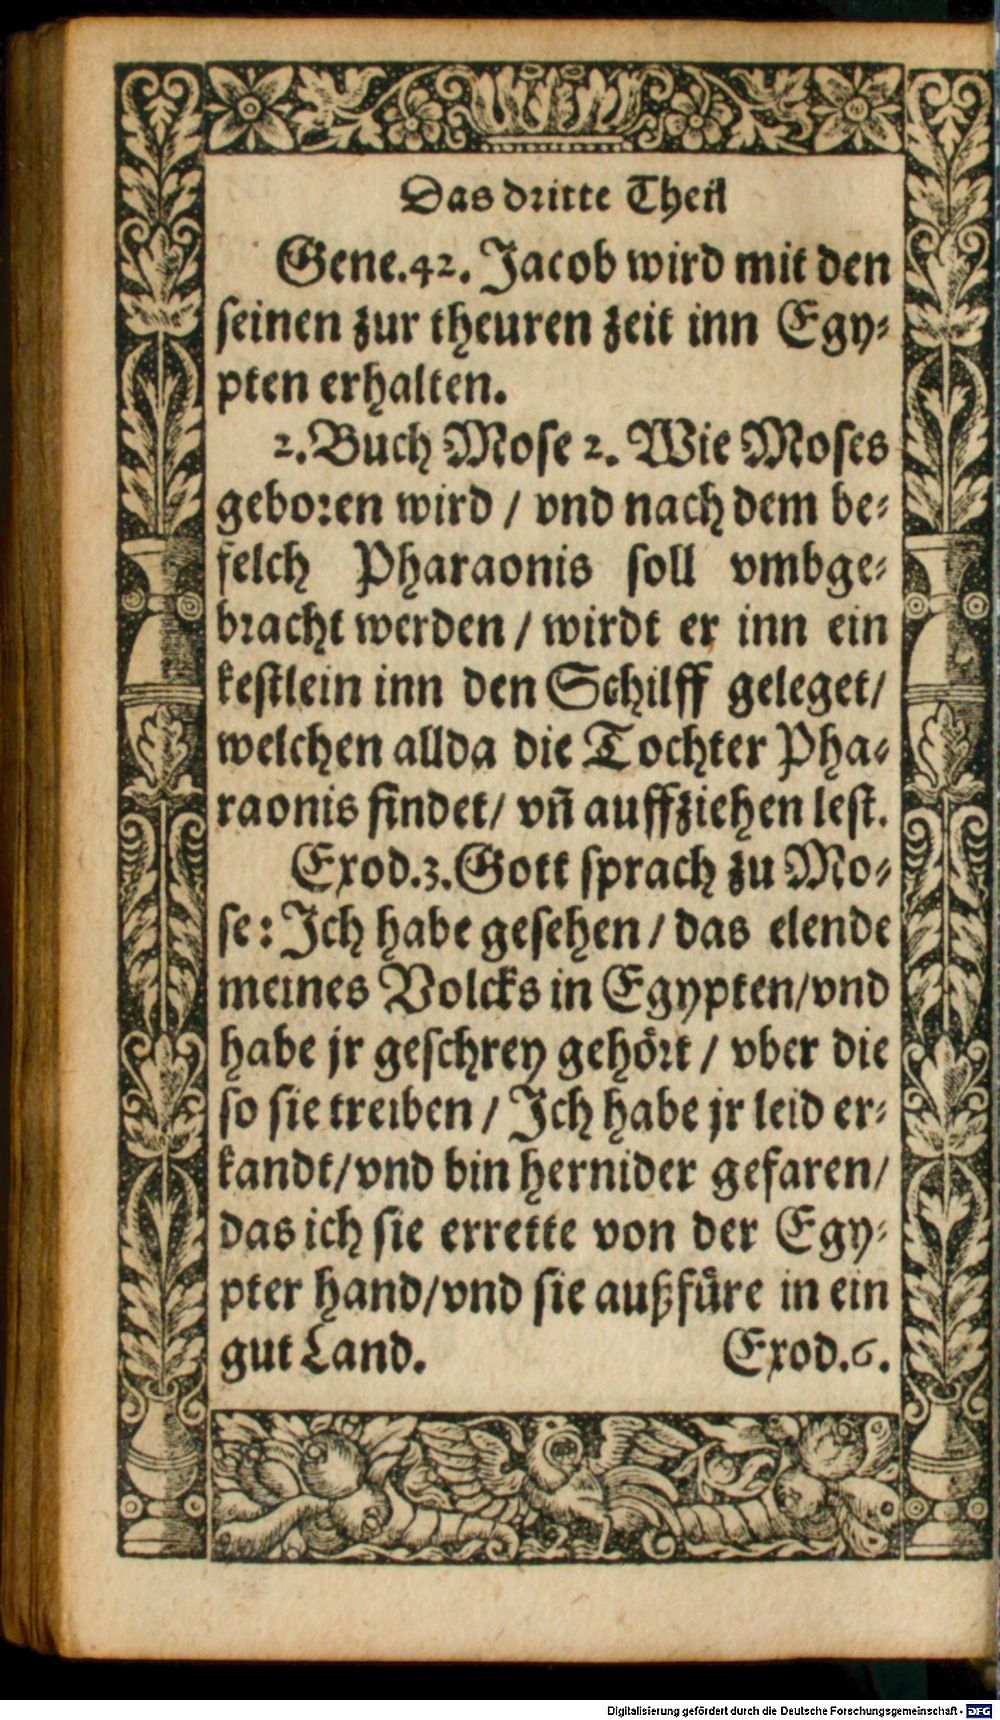 Das dritte Theil
Gene.42. Jacob wird mit den
seinen zur theuren zeit inn Egy⸗
pten erhalten.
2. Buch Mose 2. Wie Moses
geboren wird / vnd nach dem be⸗
felch Pharaonis soll vmbge⸗
bracht werden / wirdt er inn ein
kestlein inn den Schilff geleget/
welchen allda die Tochter Pha⸗
raonis findet/ vñ auffziehen lest.
Exod.3. Gott sprach zu Mo⸗
se: Ich habe gesehen / das elende
meines Volcks in Egypten/vnd
habe jr geschrey gehoͤrt / vber die
so sie treiben / Ich habe jr leid er⸗
kandt/vnd bin hernider gefaren/
das ich sie errette von der Egy⸗
pter hand/vnd sie außfuͤre in ein
gut Land. Exod.6.
Digitalisierung gefördert durch die Deutsche Forschungsgemeinschaft - DFG